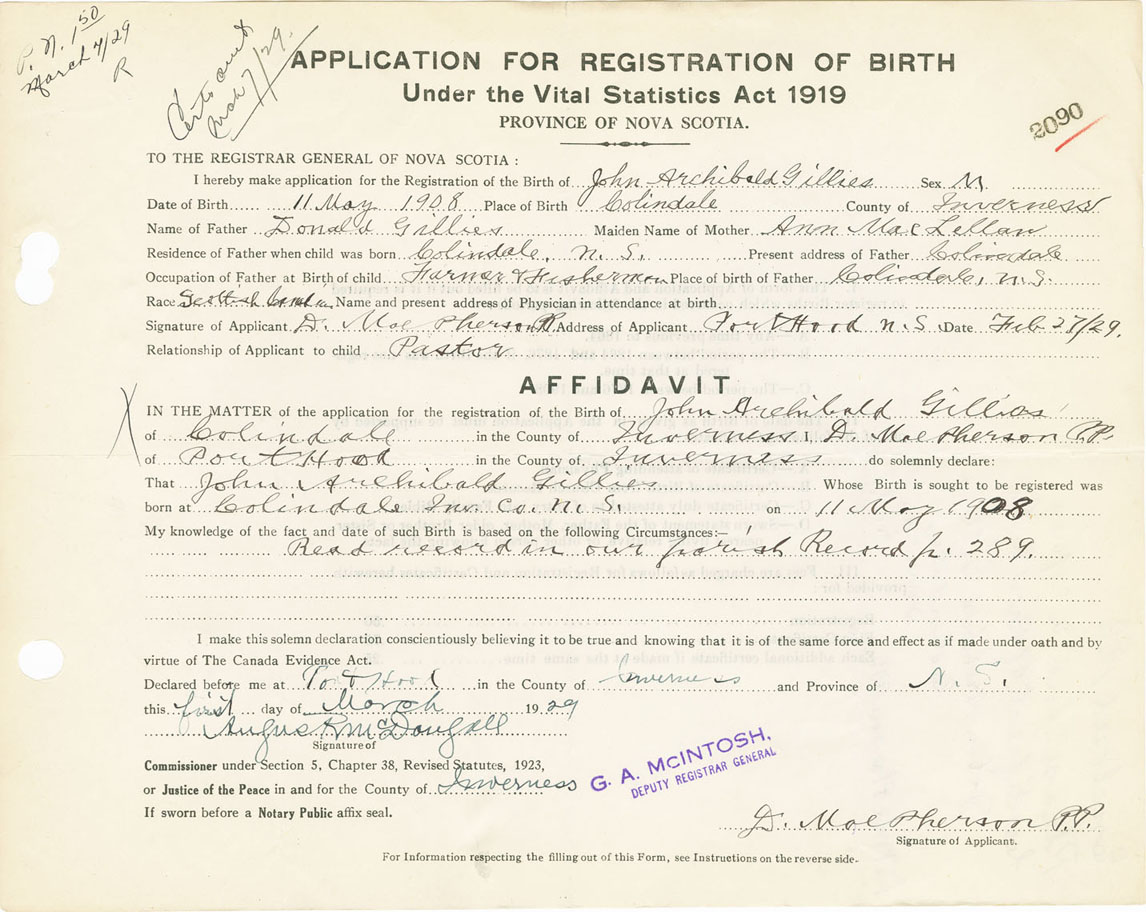 P. N. 1 50
March 4/29
R
Certs out
Mch 7/29.
APPLICATION FOR REGISTRATION OF BIRTH
Under the Vital Statistics Act 1919
PROVINCE OF NOVA SCOTIA.
2090
TO THE REGISTRAR GENERAL OF NOVA SCOTIA:
I hereby make application for the Registration of the Birth of John Archibald Gillies Sex M
Date of Birth 11 May 1908 Place of Birth Colindale County of Inverness
Name of Father Donald Gillies Maiden Name of Mother Ann MacLellan
Residence of Father when child was born Colindale, N. S. Present address of Father Colindale
Occupation of Father at Birth of child Farmer & Fisherman Place of birth of Father Colindale, N.S.
Race Scottish Name and present address of Physician in attendance at birth
Signature of Applicant D. MacPherson PP Address of Applicant Port Hood N.S. Date Feb 27/29.
Relationship of Applicant to child Pastor
AFFIDAVIT
IN THE MATTER of the application for the registration of the Birth of John Archibald Gillies
of Colindale in the County of Inverness I, D. MacPherson P.P.
of Port Hood in the County of Inverness do solemnly declare:
That John Archibald Gillies Whose Birth is sought to be registered was
born at Colindale Inv. Co. N. S. on 11 May 1908
My knowledge of the fact and date of such Birth is based on the following Circumstances:—
Read record in our parish Record p. 289.
I make this solemn declaration conscientiously believing it to be true and knowing that it is of the same force and effect as if made under oath and by
virtue of The Canada Evidence Act.
Declared before me at Port Hood in the County of Inverness and Province of N. S.
this first day of March 1929
Angus R McDougall
Signature of
Commissioner under Section 5, Chapter 38, Revised Statutes, 1923,
or Justice of the Peace in and for the County of Inverness
G. A. McINTOSH,
DEPUTY REGISTRAR GENERAL
If sworn before a Notary Public affix seal.
D. MacPherson P.P.
Signature of Applicant.
For Information respecting the filling out of this Form, see Instructions on the reverse side.